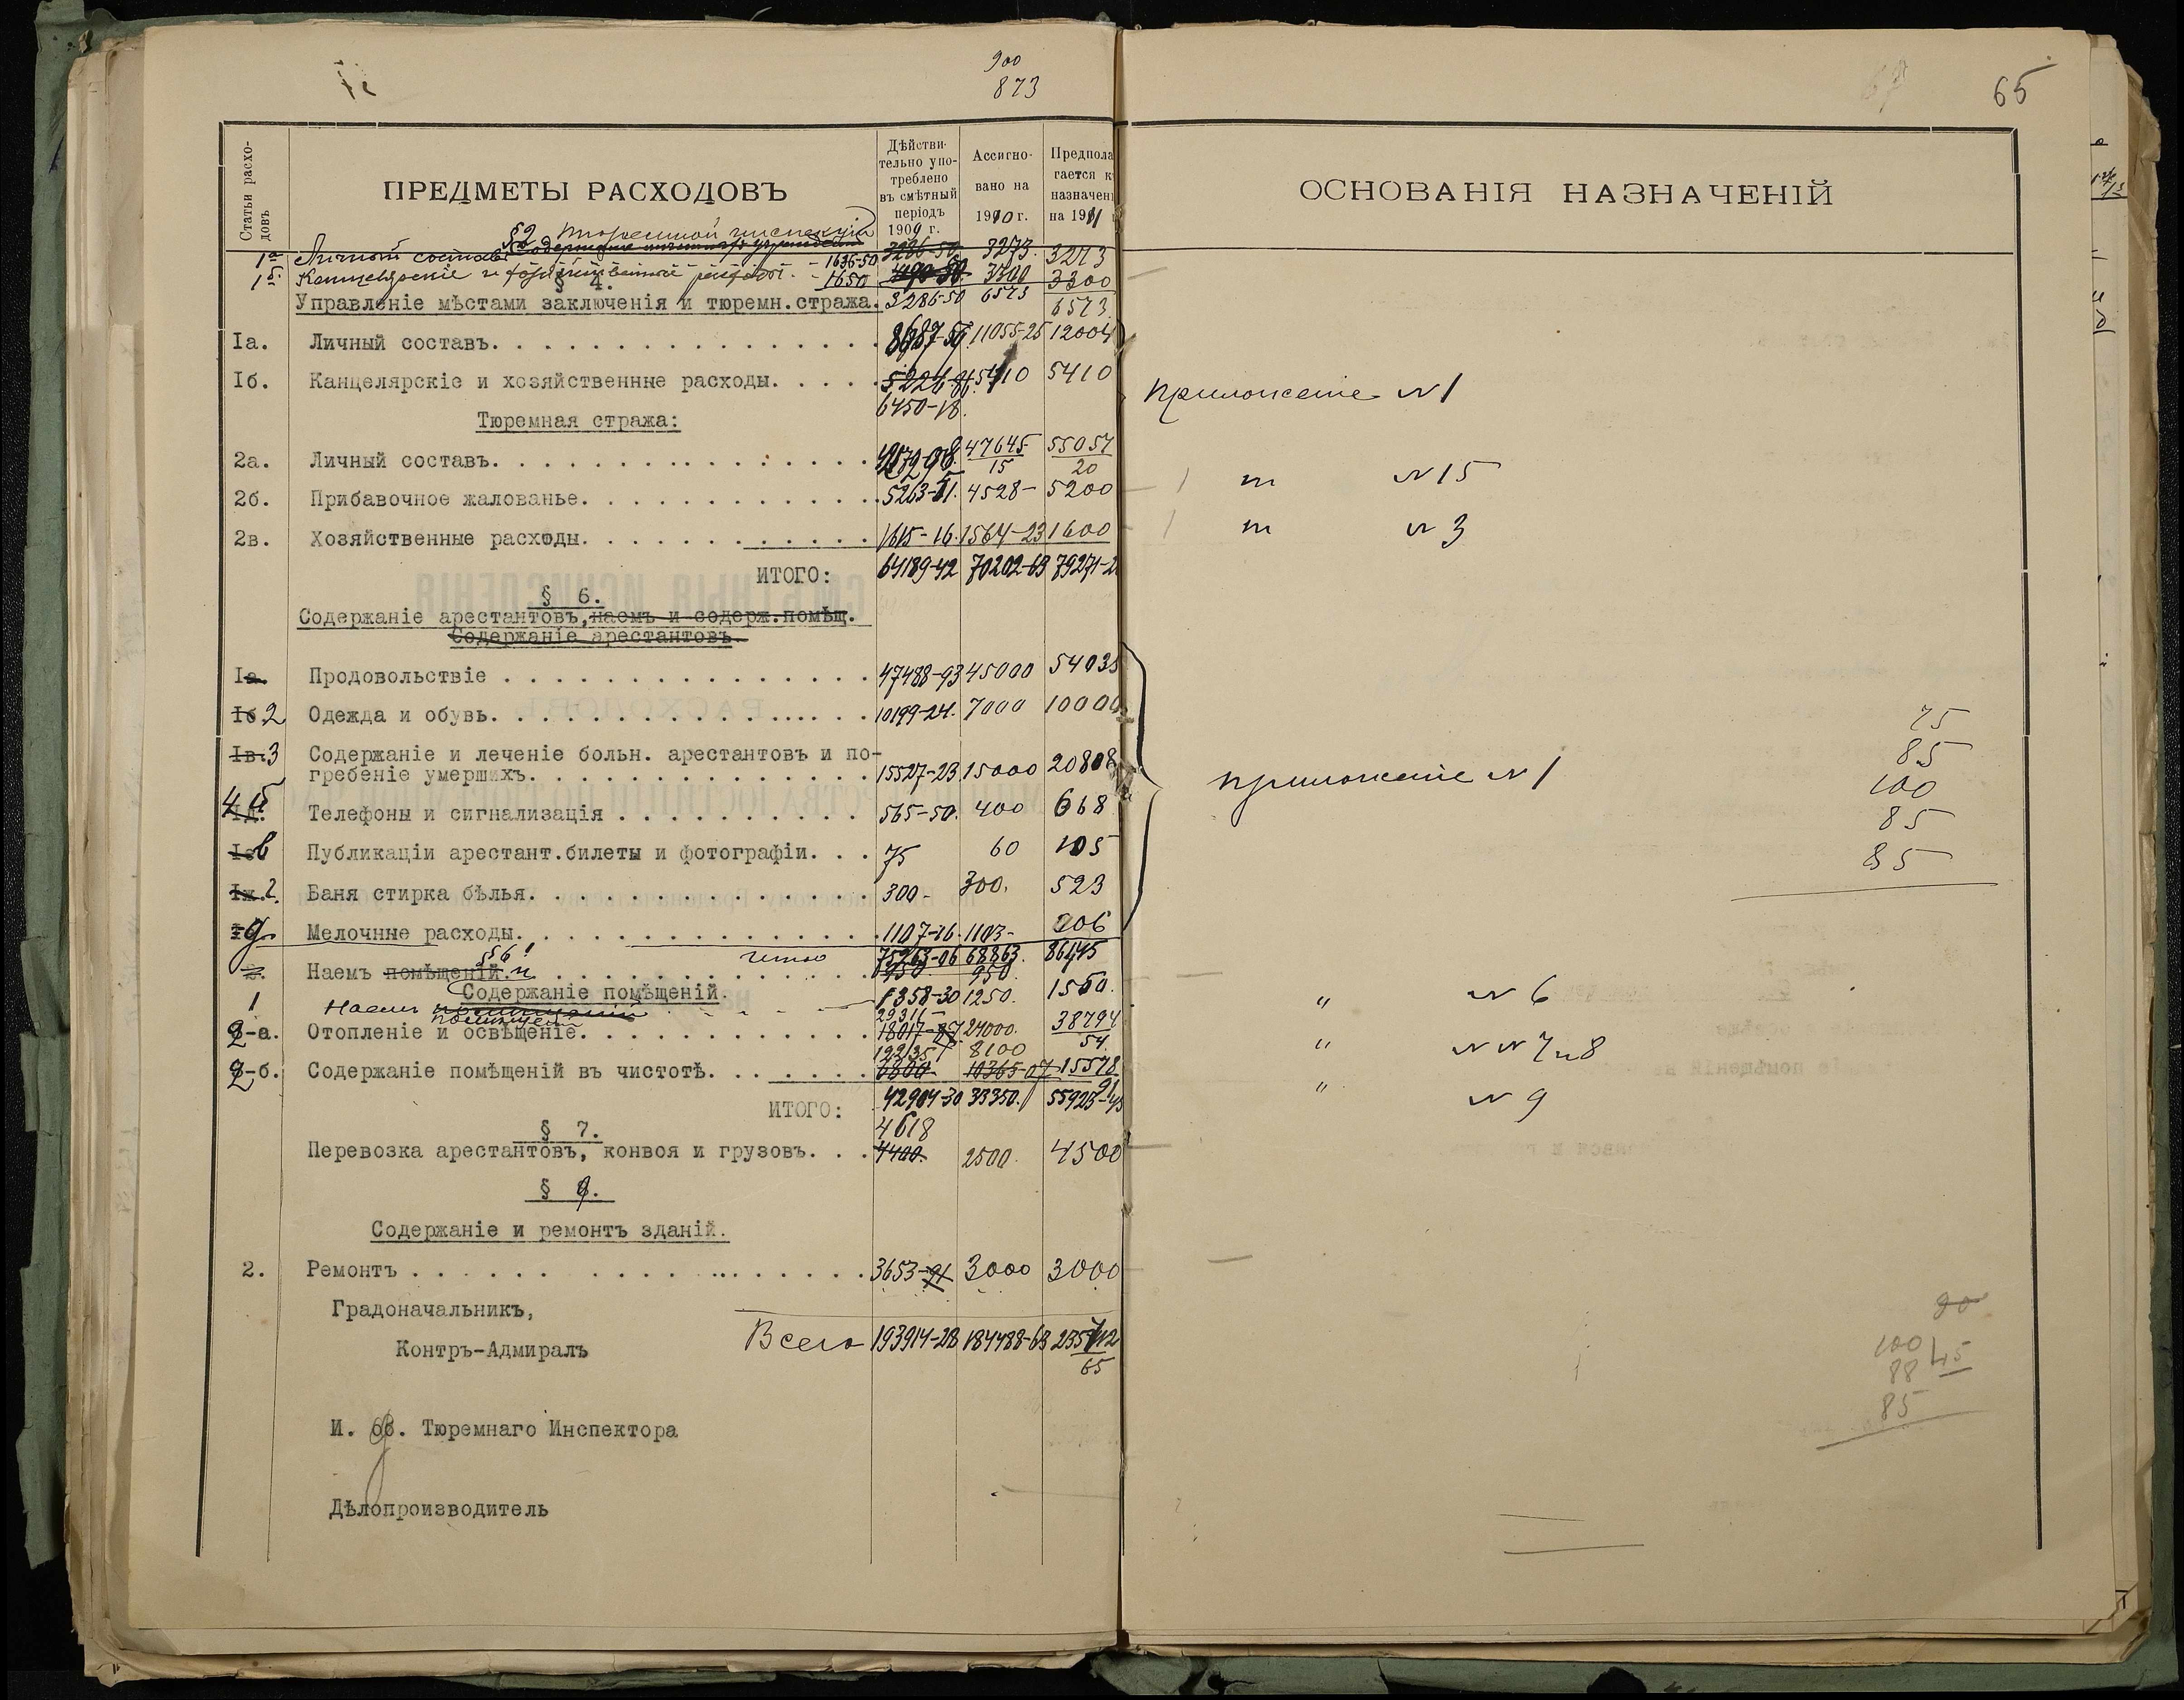 900
873
65
Статьи расхо-
довъ
ПРЕДМЕТЫ РАСХОДОВЪ
Дѣйстви-
тельно упо-
треблено
въ смѣтный
періодъ
1909 г.
Ассигно-
вано на
1910 г.
Предпола
гается к
назначен
на 1911
ОСНОВАНІЯ НАЗНАЧЕНІЙ
§2 Тюремной инспекціи
1а Личный составъ - 1636-50 3286-50 3273. 3273
1б. Канцелярскіе и хозяйственные расходы. - 1650 3300 3300
§ 4.
Управленіе мѣстами заключенія и тюремн.стража. 3286-50 6573 6573.
Iа. Личный составъ. 11055-25 12004
Iб. Канцелярскіе и хозяйственные расходы. 5410 5410
6450-18.
Приложеніе №1
Тюремная стража:
2а. Личный составъ. 47645 15 55057 20
2б. Прибавочное жалованье. 5263-51. 4528- 5200
" №15
2в. Хозяйственные расходы. 1615-16. 1564-23 1600
" № 3
ИТОГО: 64189-42 70202-63 79271-2
§ 6.
Содержаніе арестантовъ, наемъ и содерж.помѣщ.
Содержаніе арестантовъ.
Iа. Продовольствіе 47488-93 45000 54035
Iб 2 Одежда и обувь. 10199-24. 7000 10000
75
Iв. 3 Содержаніе и леченіе больн. арестантовъ и по-
гребеніе умершихъ. 15527-23 15000 20808
Приложеніе №1
85
100
Телефоны и сигнализація 565-50. 400 668
85
Публикаціи арестант.билеты и фотографіи. 75 60 105
85
Iж. г. Баня стирка бѣлья. 300- 300. 523
Мелочные расходы. 1107-16. 1103-
итого 75263-06 68863. 86145
2. Наемъ помѣщеній. и 950. 950.
§ 6
Содержаніе помѣщеній.
1 Наемъ помѣщеній 1358-30 1250. 1550.
" № 6
2-а. Отопленіе и освѣщеніе. 29311- 24000. 38794 54.
" №№ 7 и 8
2-б. Содержаніе помѣщеній въ чистотѣ. 12235 8100 10365-07 15578
" № 9
ИТОГО: 42904-30 33350. 55923-45
§ 7.
4618
Перевозка арестантовъ, конвоя и грузовъ. 4400. 2500. 4500
§ 9.
Содержаніе и ремонтъ зданій.
2. Ремонтъ 3653-91 3000 3000
Градоначальникъ,
Контръ-Адмиралъ
Всего 193914-28 184488-63 235412 65
90
100 45
88
85
И. об. Тюремнаго Инспектора
Дѣлопроизводитель